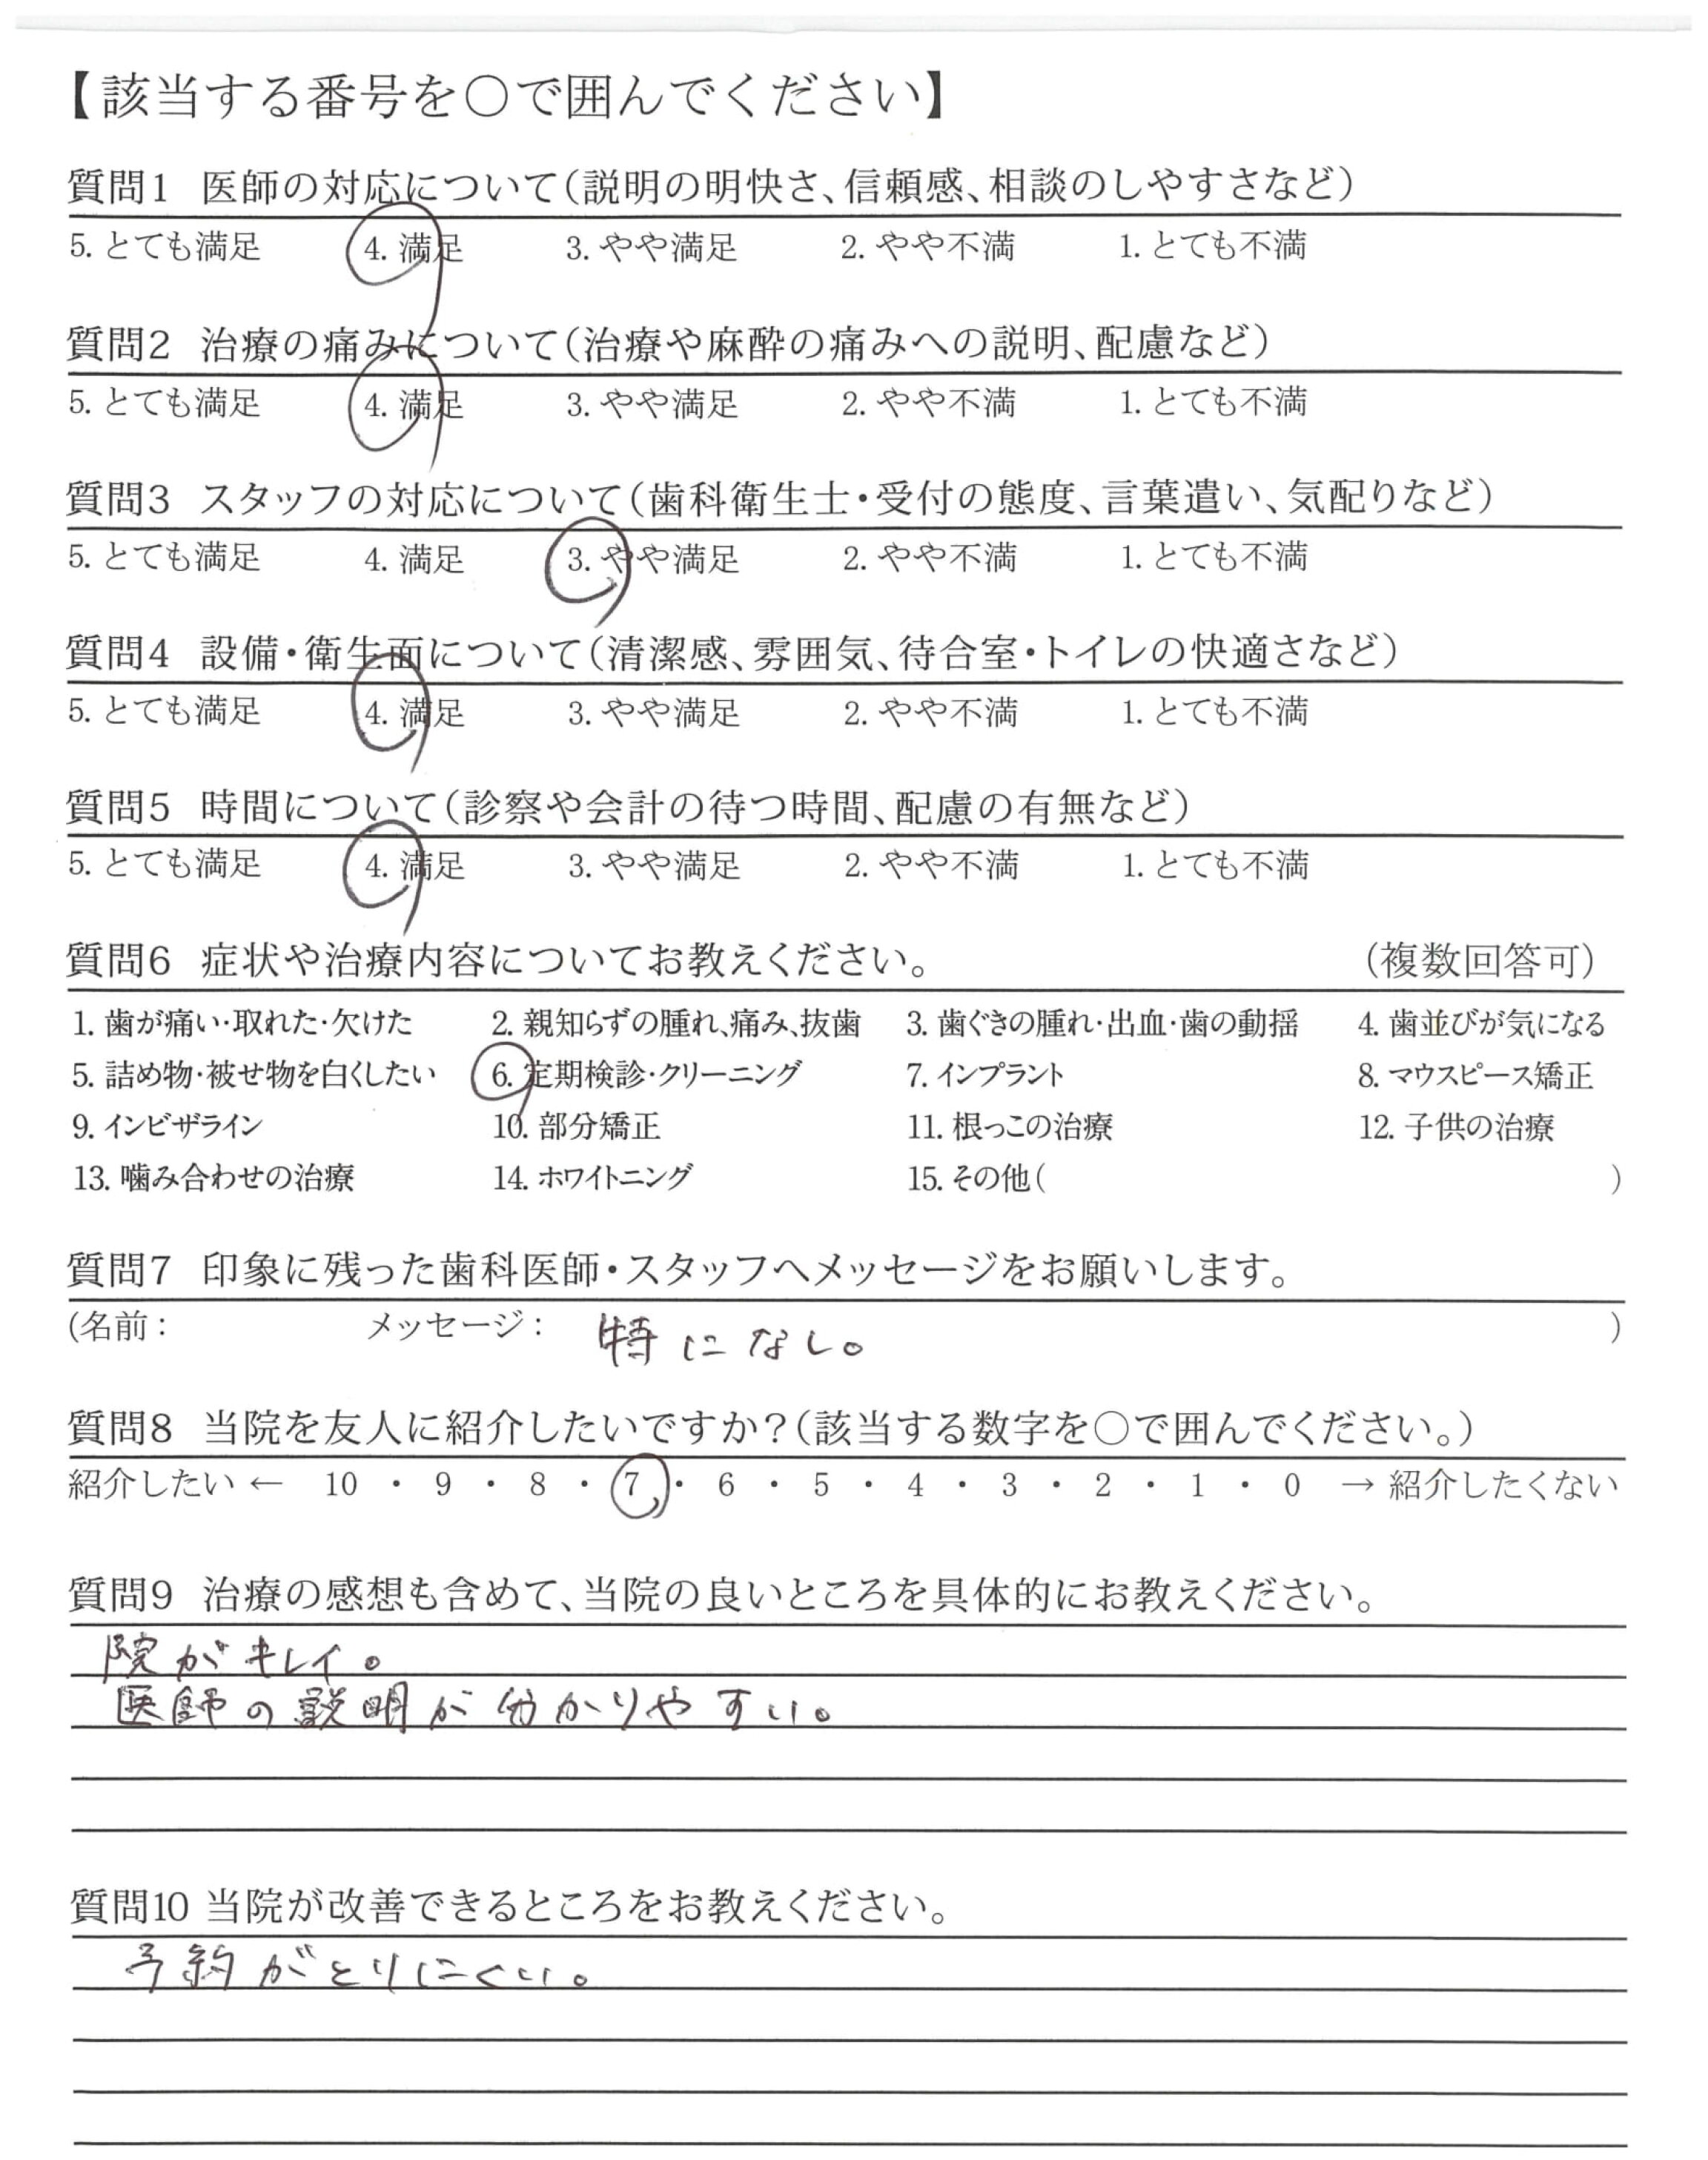 【該当する番号を○で囲んでください】
質問1 医師の対応について（説明の明快さ、信頼感、相談のしやすさなど）
5. とても満足 4. 満足 3. やや満足 2. やや不満 1. とても不満
質問2 治療の痛みについて（治療や麻酔の痛みへの説明、配慮など）
5. とても満足 4. 満足 3. やや満足 2. やや不満 1. とても不満
質問3 スタッフの対応について（歯科衛生士・受付の態度、言葉遣い、気配りなど）
5. とても満足 4. 満足 3. やや満足 2. やや不満 1. とても不満
質問4 設備・衛生面について（清潔感、雰囲気、待合室・トイレの快適さなど）
5. とても満足 4. 満足 3. やや満足 2. やや不満 1. とても不満
質問5 時間について（診察や会計の待つ時間、配慮の有無など）
5. とても満足 4. 満足 3. やや満足 2. やや不満 1. とても不満
質問6 症状や治療内容についてお教えください。 （複数回答可）
1. 歯が痛い・取れた・欠けた 2. 親知らずの腫れ、痛み、抜歯 3. 歯ぐきの腫れ・出血・歯の動揺 4. 歯並びが気になる
5. 詰め物・被せ物を白くしたい 6. 定期検診・クリーニング 7. インプラント 8. マウスピース矯正
9. インビザライン 10. 部分矯正 11. 根っこの治療 12. 子供の治療
13. 噛み合わせの治療 14. ホワイトニング 15. その他（ ）
質問7 印象に残った歯科医師・スタッフへメッセージをお願いします。
(名前： メッセージ： 特になし。 )
質問8 当院を友人に紹介したいですか？（該当する数字を○で囲んでください。）
紹介したい ← 10 ・ 9 ・ 8 ・ 7 ・ 6 ・ 5 ・ 4 ・ 3 ・ 2 ・ 1 ・ 0 → 紹介したくない
質問9 治療の感想も含めて、当院の良いところを具体的にお教えください。
院がキレイ。
医師の説明が分かりやすい。
質問10 当院が改善できるところをお教えください。
予約がとりにくい。